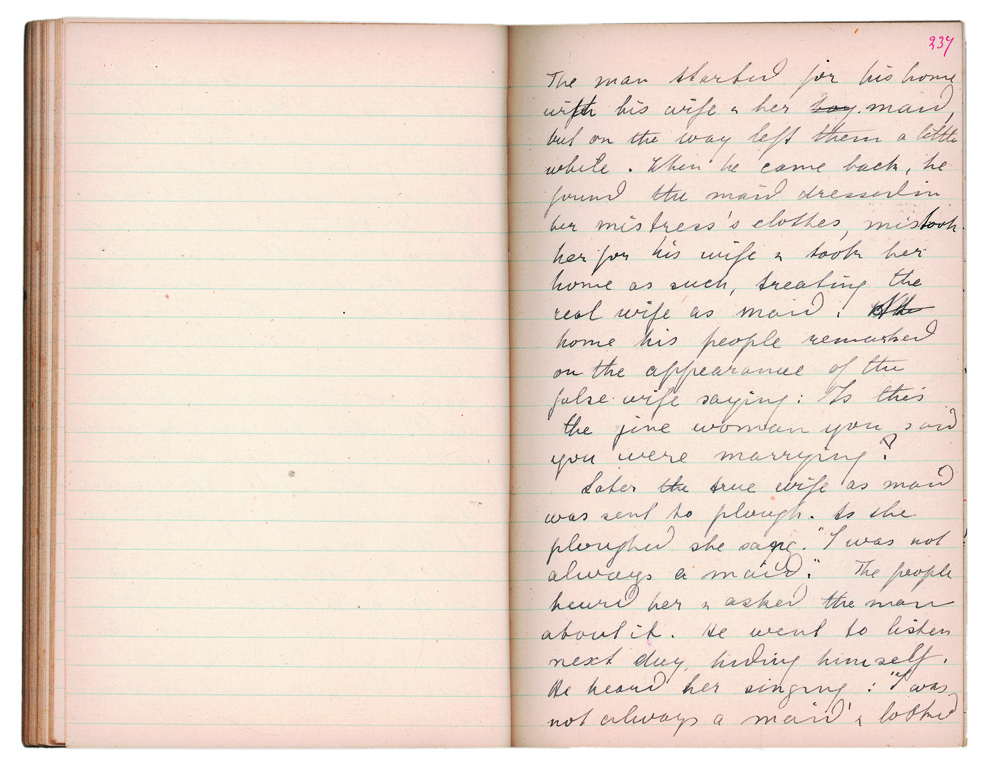 237
The man started for his home
with his wife & her boy maid,
but on the way left them a little
while. When he came back, he
found the maid dressed in
her mistress's clothes, mistook
her for his wife & took her
home as such, treating the
real wife as maid.
home his people remarked
on the appearance of the
false wife saying: Is this
the fine woman you said
you were marrying?
Later the true wife as maid
was sent to plough. As she
ploughed she sang. "I was not
always a maid." The people
heard her & asked the man
about it. He went to listen
next day, hiding himself.
He heard her singing: "I was
not always a maid" &